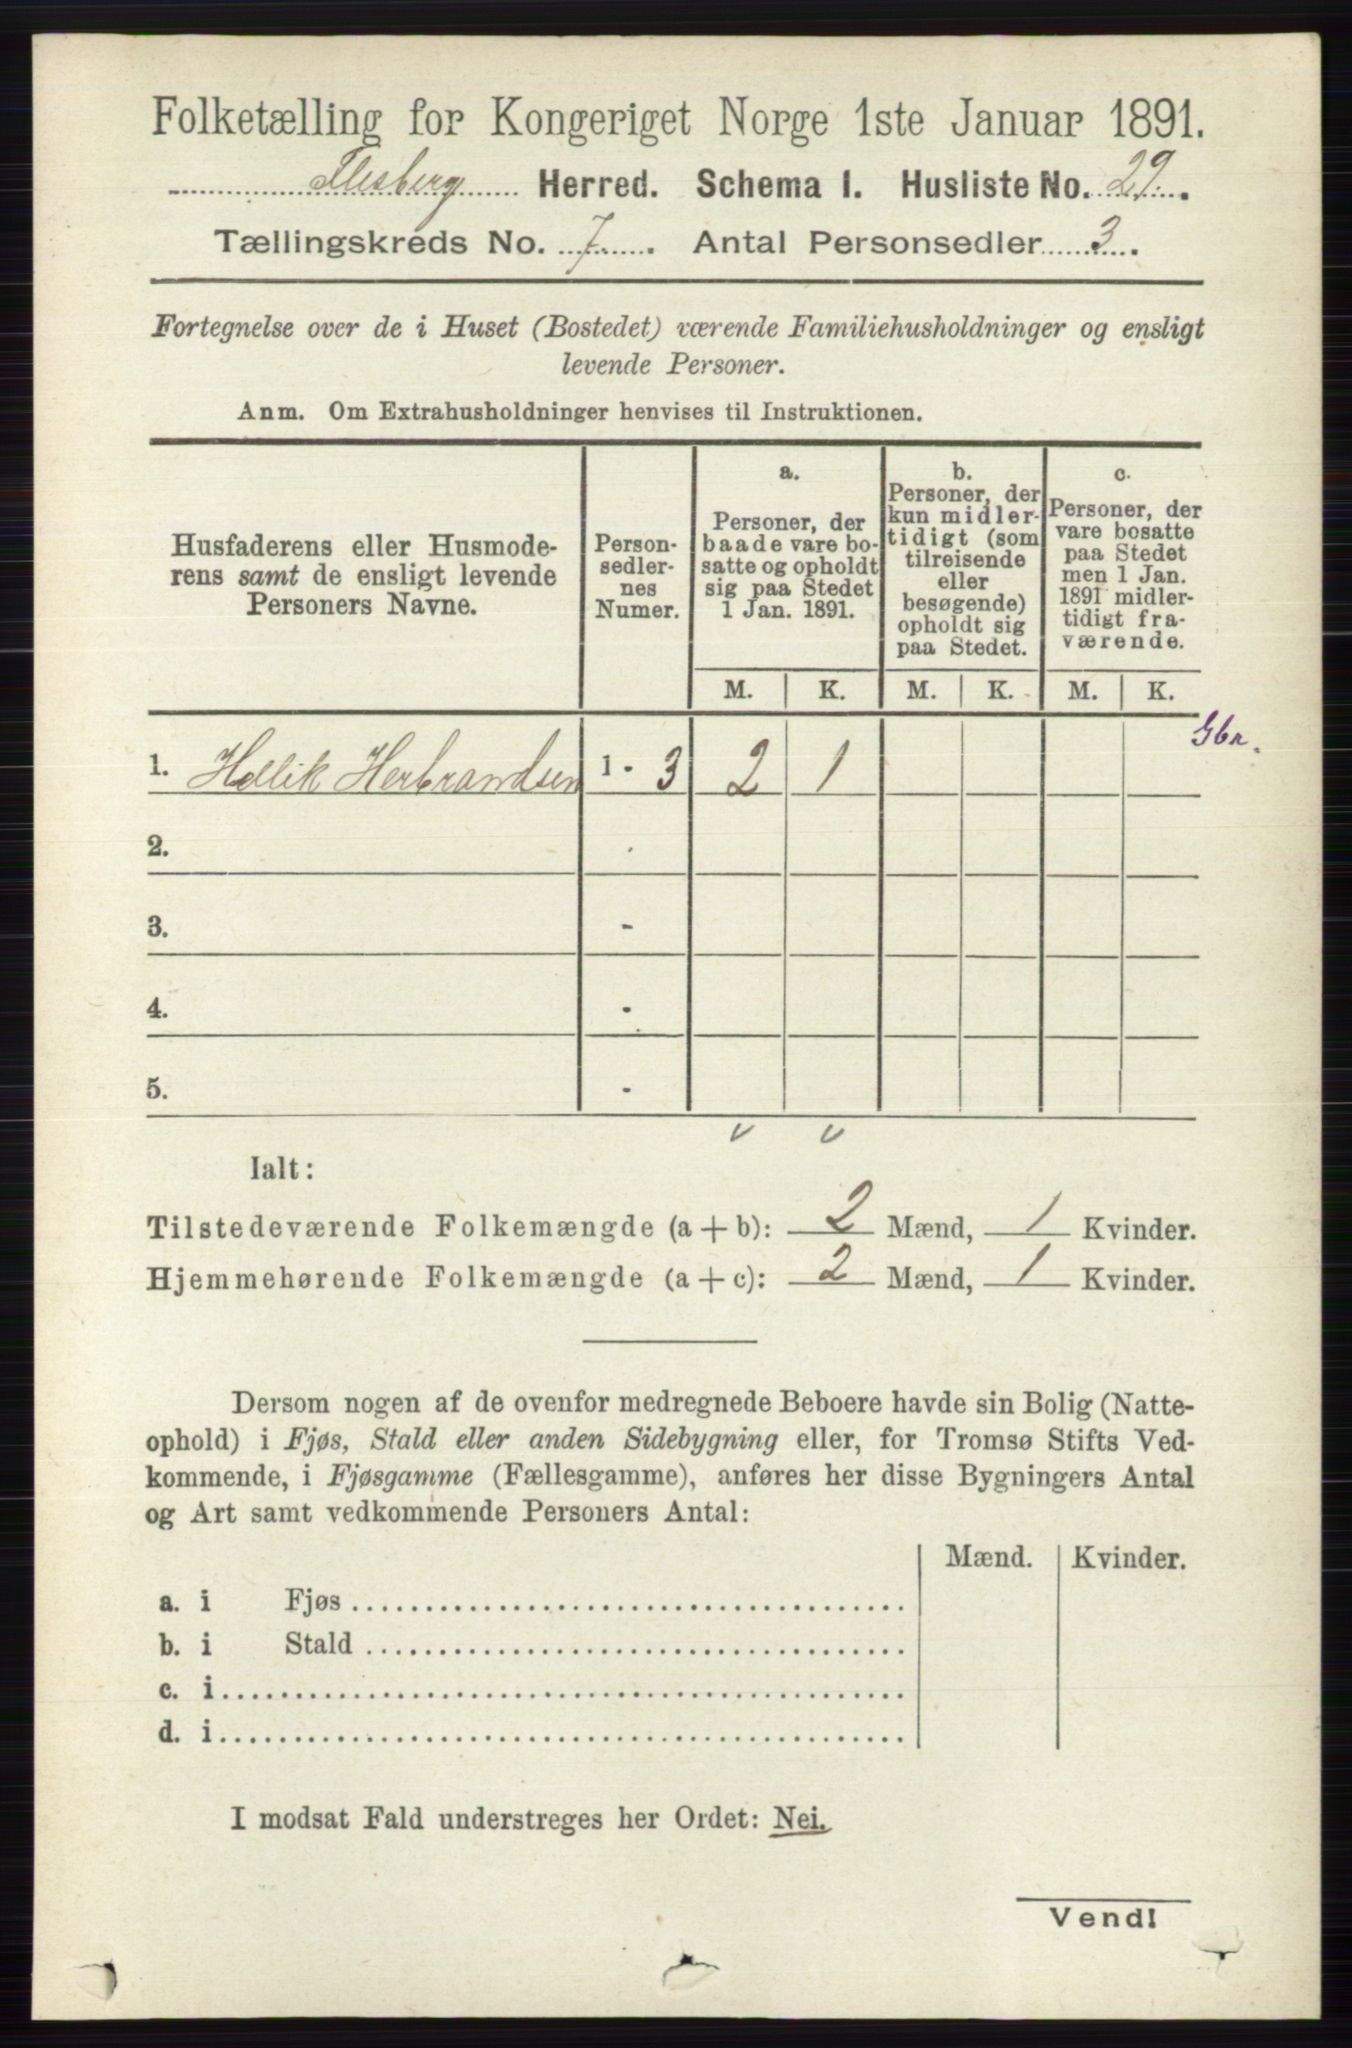 Folketælling for Kongeriget Norge 1ste Januar 1891.
Flesberg Herred. Schema I. Husliste No. 29.
Tællingskreds No. 7. Antal Personsedler 3.
Fortegnelse over de i Huset (Bostedet) værende Familiehusholdninger og ensligt
levende Personer.
Anm. Om Extrahusholdninger henvises til Instruktionen.
Husfaderens eller Husmode-
rens samt de ensligt levende
Personers Navne.
Person-
sedler-
nes
Numer.
a.
Personer, der
baade vare bo-
satte og opholdt
sig paa Stedet
1 Jan. 1891.
b.
Personer, der
kun midler-
tidigt (som
tilreisende
eller
besøgende)
opholdt sig
paa Stedet.
c.
Personer, der
vare bosatte
paa Stedet
men 1 Jan.
1891 midler-
tidigt fra-
værende.
M. K. M. K. M. K.
Gbr.
1. Hellik Herbrandsen 1 - 3 2 1
2.
3. -
4. -
5. -
Ialt:
Tilstedeværende Folkemængde (a + b): 2 Mænd, 1 Kvinder.
Hjemmehørende Folkemængde (a + c): 2 Mænd, 1 Kvinder.
Dersom nogen af de ovenfor medregnede Beboere havde sin Bolig (Natte-
ophold) i Fjøs, Stald eller anden Sidebygning eller, for Tromsø Stifts Ved-
kommende, i Fjøsgamme (Fællesgamme), anføres her disse Bygningers Antal
og Art samt vedkommende Personers Antal:
Mænd. Kvinder.
a. i Fjøs
b. i Stald
c. i
d. i
I modsat Fald understreges her Ordet: Nei.
Vend!